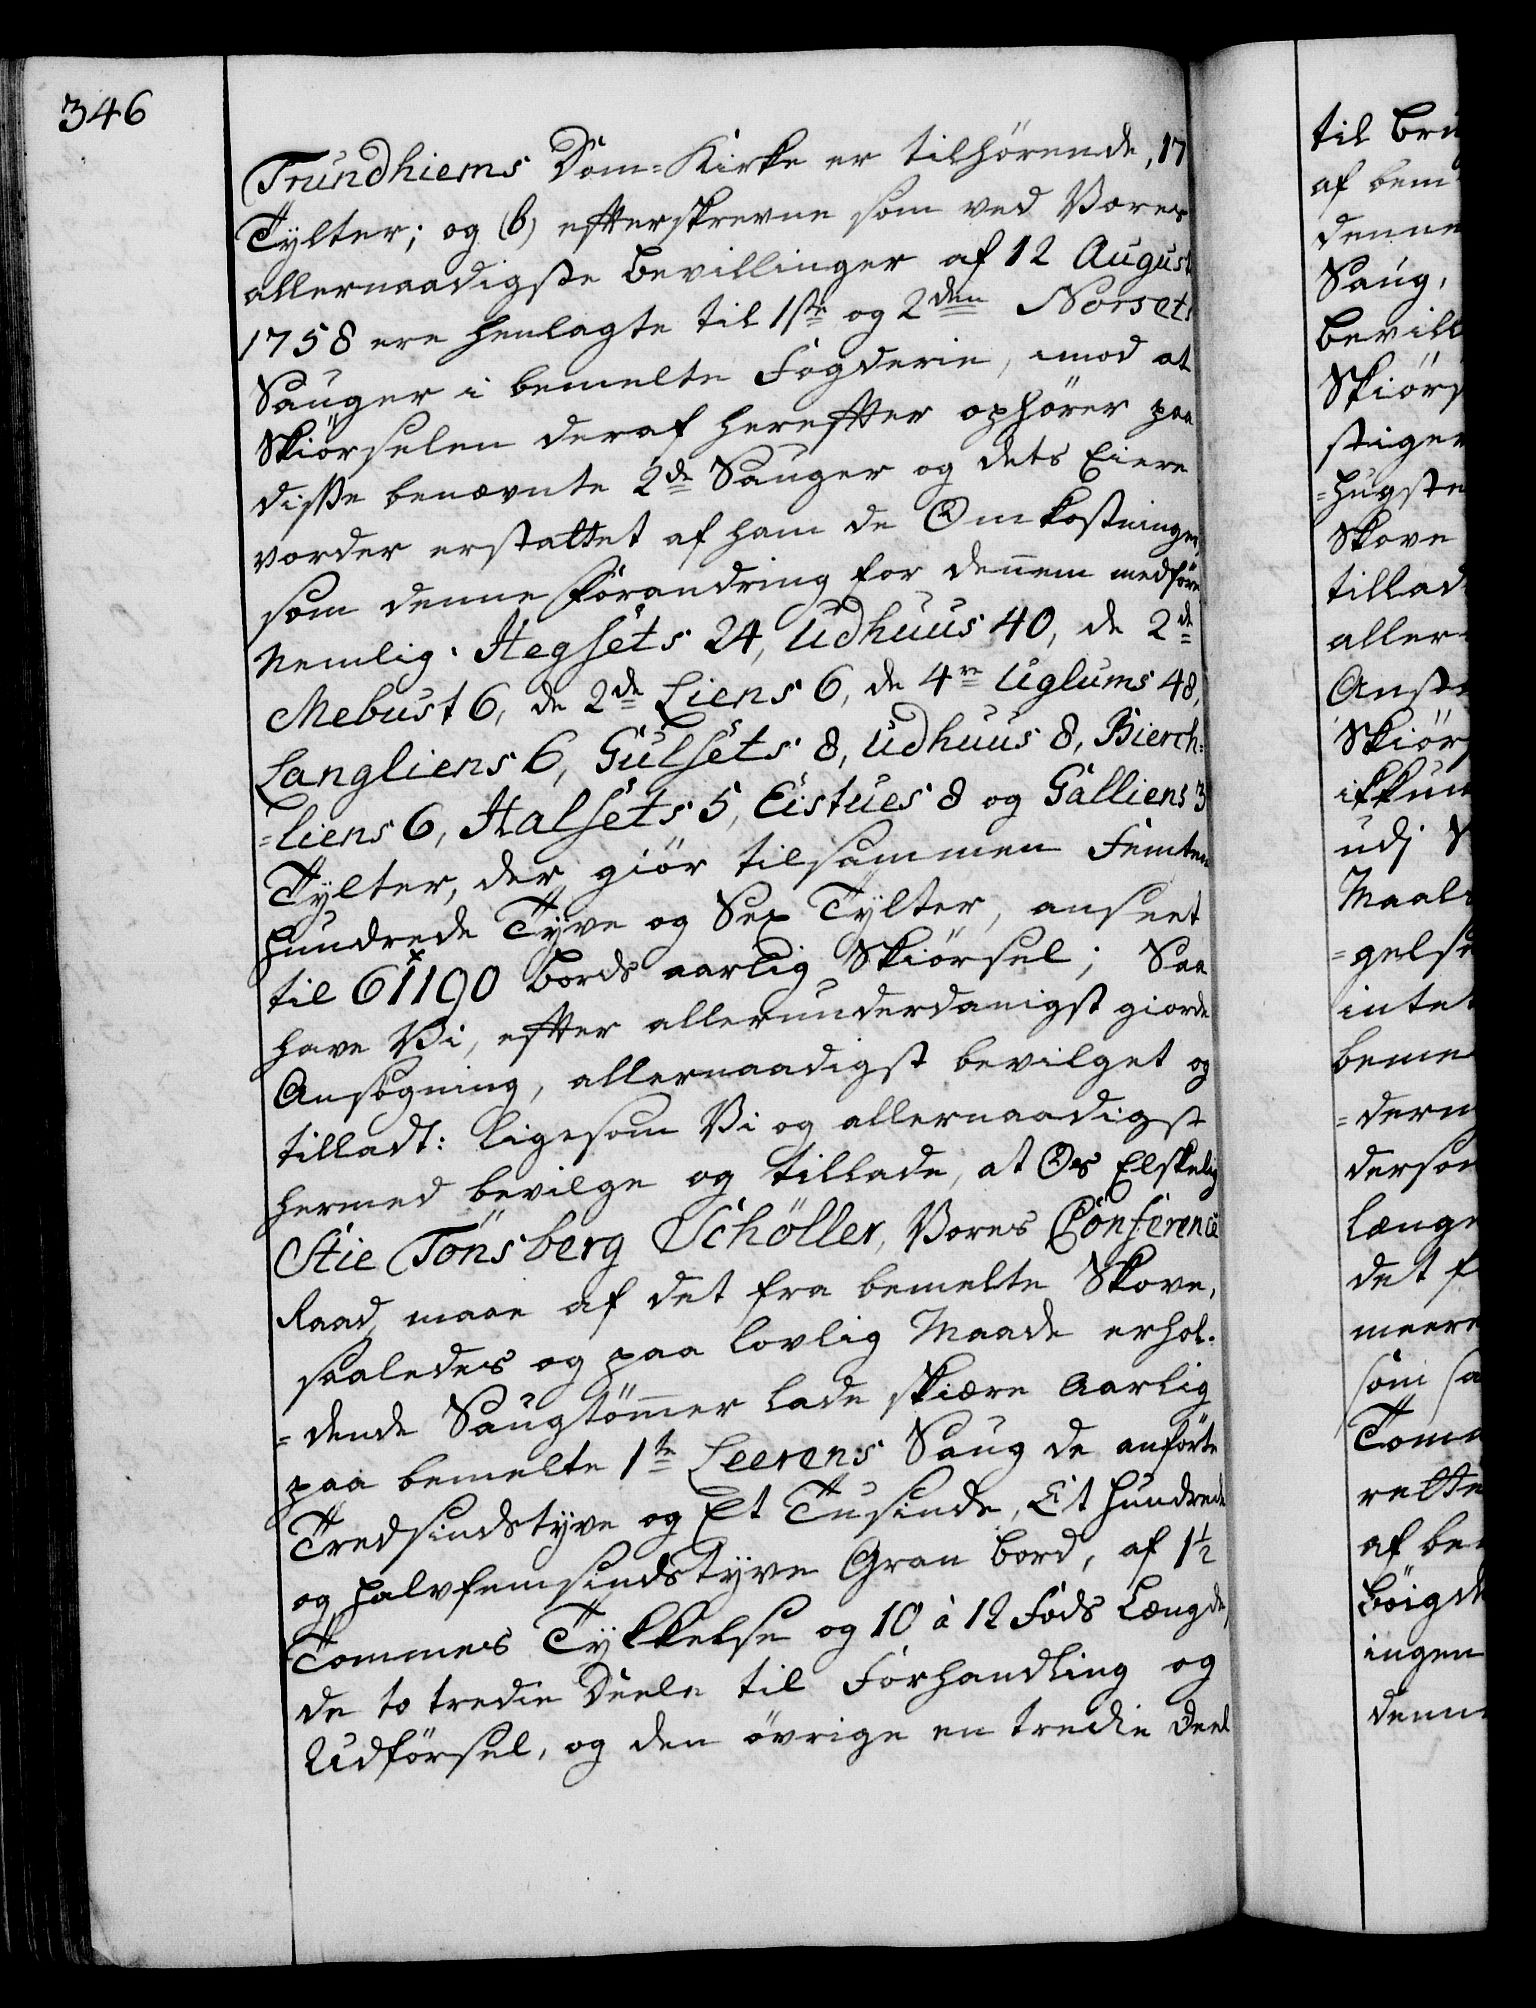 346
Trundhiems Dom-Kirke er tilhörende, 17
Tylter; og (b) efterskrevne som ved Vores
allernaadigste Bevillinger af 12 August
1758 ere henlagte til 1ste og 2den Norsets
Sauger i bemelte Fogderie, imod at
Skiörselen deraf herefter ophörer paa
disse benævnte 2de Sauger og dets Eiere
vorder erstattet af ham de Omkostninger
som denne Forandring for dennem medföre
Nemlig: Hegsets 24, Udhuus 40, de 2de
Mebust 6, de 2de Liens 6, de 4re Uglums 48,
Langliens 6, Gulsets 8, Udhuus 8, Bierch=
=liens 6, Halsets 5, Eistues 8 og Galliens 3
Tylter, der giör tilsammen Femten
hundrede Tyve og Sex Tylter, anseet
til 61190 bords aarlig Skiörsel; Saa
have Vi, efter allerunderdanigst giorde
Ansögning, allernaadigst bevilget og
tilladt: ligesom Vi og allernaadigst
hermed bevilge og tillade, at Os Elskelig
Stie Tönsberg Schöller, Vores Conference
Raad, maae af det fra bemelte Skove,
saaledes og paa lovlig Maade erhol-
=dende Saugtömmer lade skiære Aarlig
paa bemelte 1te Leerens Saug de anförte
Tredsindstyve og Et Tusinde, Et hundrede
og halvfemsindstyve Gran bord, af 1½
Tommes Tykkelse og 10 à 12 Fods Længde,
de to tredie Deele til Forhandling og
Udförsel, og den övrige en tredie Deel
til Bru
af bem
denne
Saug,
Bevill
Skiörs
stiger
=hugste
Skove
tillad
aller
Anst
Skiörs
ikkun
udj
Maal
=gelse
intet
beme
=dern
derson
længe
det f
meere
som sa
Tom
rette
af be
böigd
ingen
denn